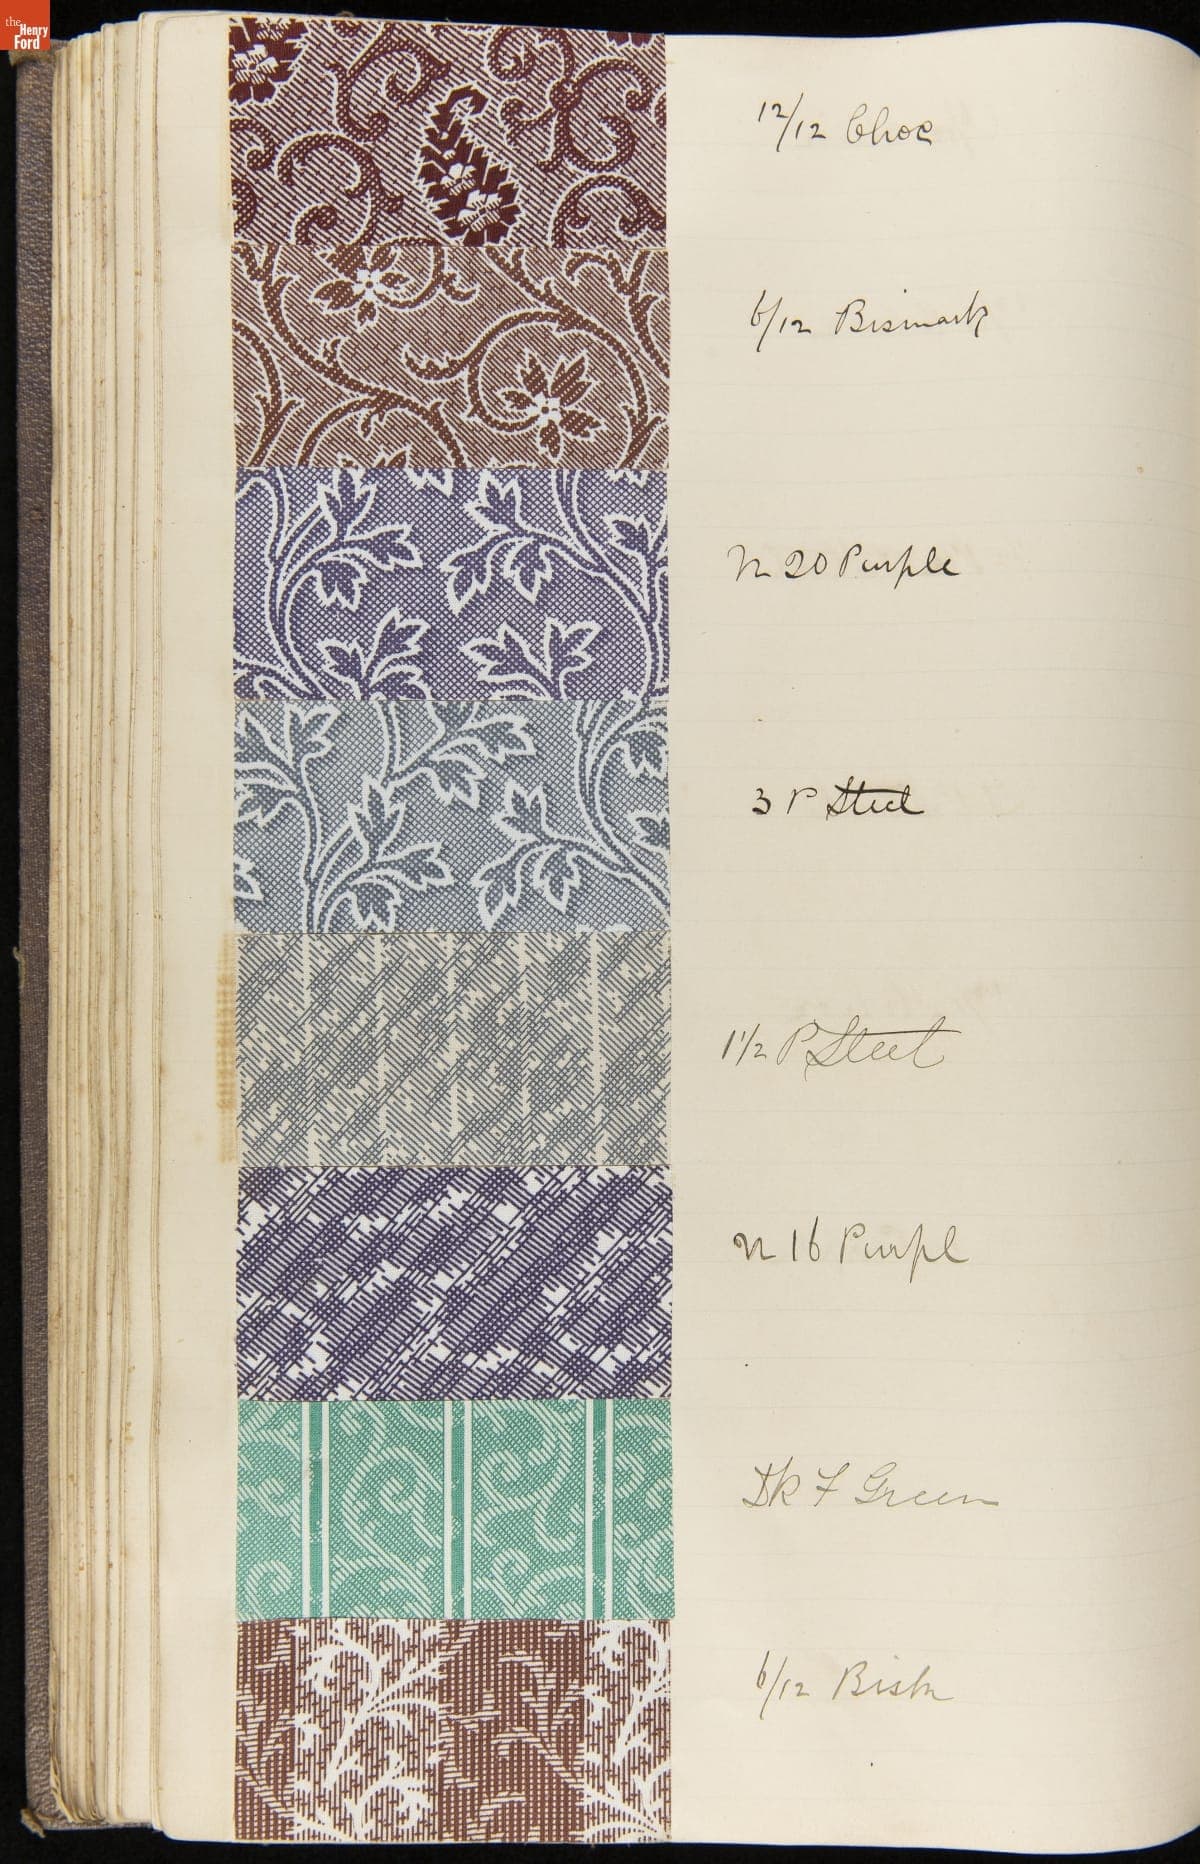 the
Henry
Ford
12/12 Choc
6/12 Bismark
N 20 Purple
3 P Steel
1 1/2 P Steel
N 16 Purpl
Dk F Green
6/12 Bisk